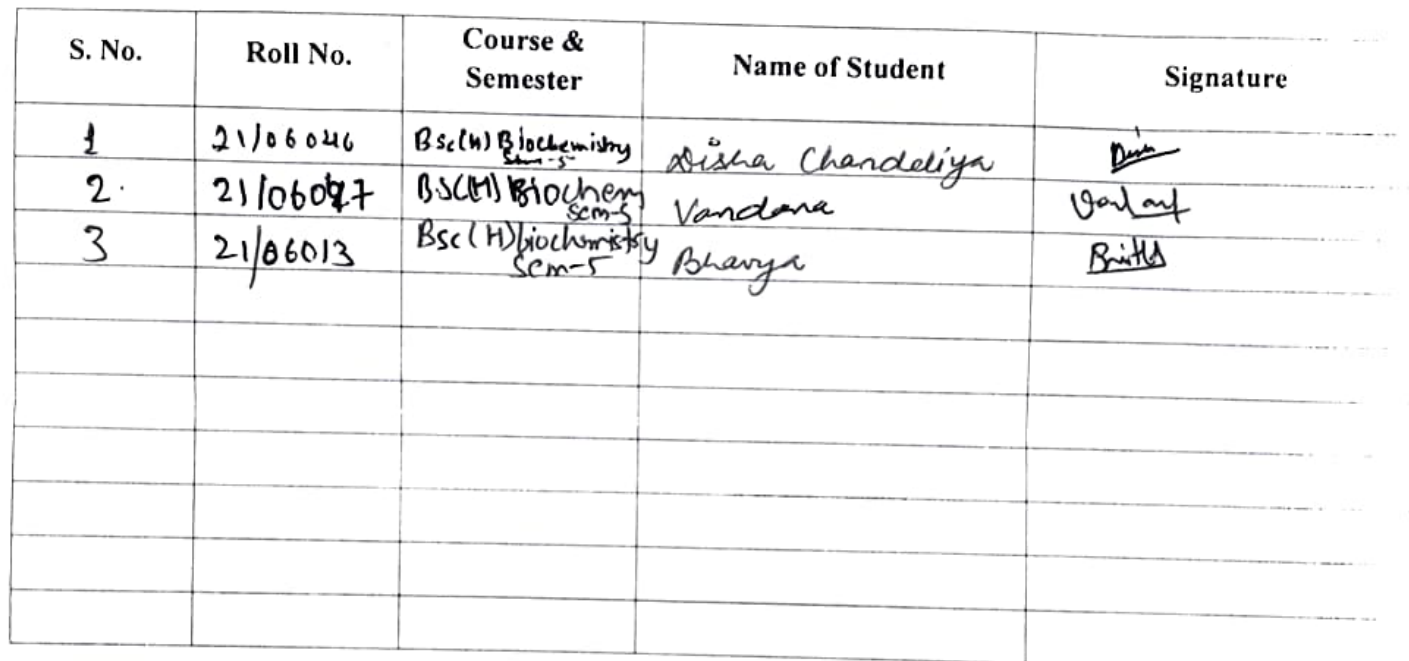 S. No. Roll No. Course & Semester Name of Student Signature
1 21/06046 Bsc(H) Biochemistry Sem-5 Disha Chandeliya
2. B.SC(H) Biochem Sem-5 Vandana
3 21/06013 Bsc(H) biochemistry Sem-5 Bhavya